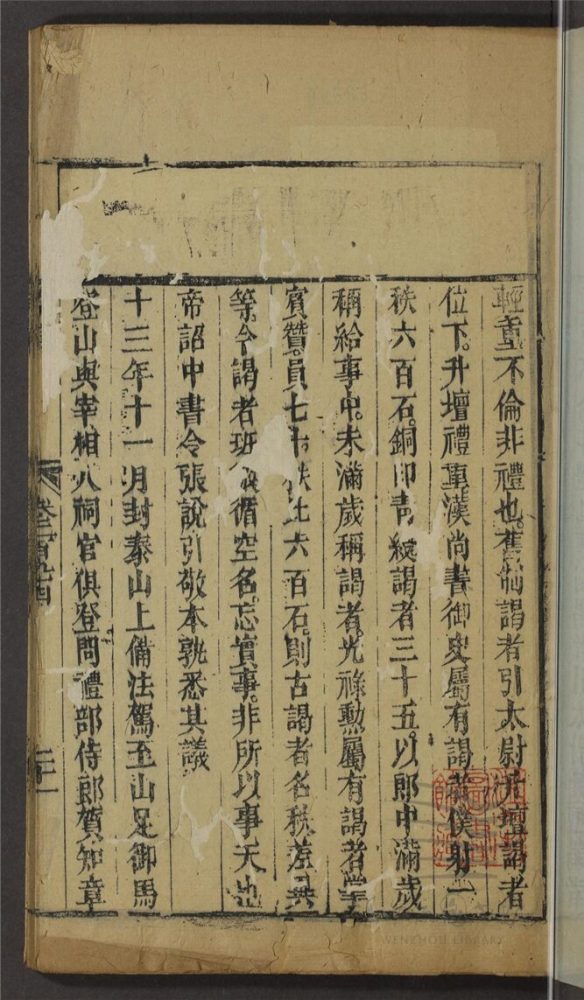 輕重不倫非禮也舊制謁者引太尉升壇謁者
位下升壇禮重漢尚書御史屬有謁者僕射一
秩六百石銅印青綬謁者三十五以郎中滿歲
稱給事中未滿歲稱謁者光祿勳屬有謁者掌
賓贊員七十秩比六百石則古謁者名秩差異
等今謁者班微循空名忘實事非所以事天也
帝詔中書令張說引敬本孰悉其議
十三年十一月封泰山上備法駕至山足御馬
登山與宰相八祠官俱登問禮部侍郎賀知章
WENZHOU LIBRARY